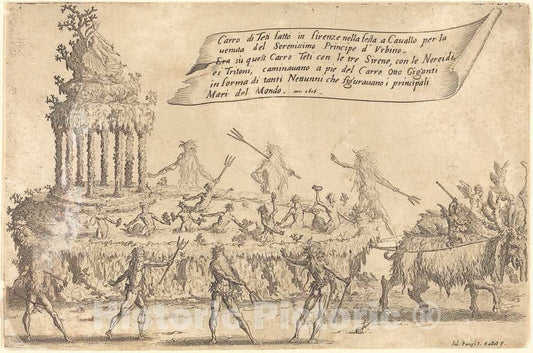 Carro di Teti fatto in firenze nella festa a Cavallo per la
venuta del Serenissimo Principe d'Vrbino.
Era su questo Carro Teti con le tre Sirene, con le Nereidi,
ei Tritoni, caminauano a pie del Carro Otto Giganti
in forma di tanti Nettunni che figurauano i principali
Mari del Mondo.
Historic Pictoric ®
Iul. Parigi I. Callot F.